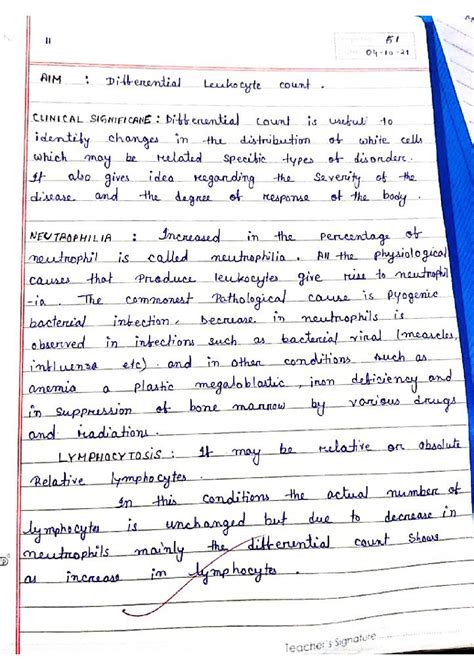 11
51
04-10-21
AIM : Differential Leukocyte count .
CLINICAL SIGNIFICANE : Differential count is useful to
identify changes in the distribution of white cells
which may be related specific types of disorder.
It also gives idea regarding the severity of the
disease and the degree of response of the body .
NEUTROPHILIA : Increased in the percentage of
neutrophil is called neutrophilia . All the physiological
causes that produce leukocytes give rise to neutrophil
-ia . The commonest Pathological cause is Pyogenic
bacterial infection, Decrease in neutrophils is
observed in infections such as bacterial viral (measles,
influenza etc) and in other conditions such as
anemia a plastic megaloblastic , iron deficiency and
in suppression of bone marrow by various drugs
and radiations .
LYMPHOCYTOSIS : It may be relative or absolute
Relative lymphocytes .
In this conditions the actual number of
lymphocytes is unchanged but due to decrease in
neutrophils mainly the differential count shows
as increase in lymphocytes .
Teacher's Signature